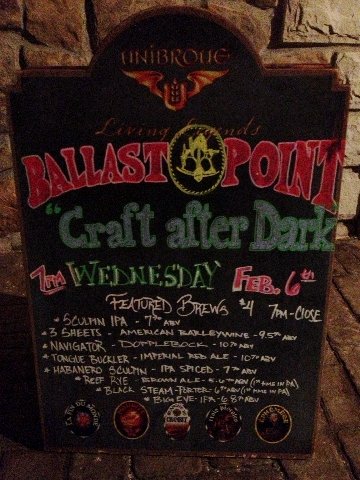 UNIBROUE
Living Legends
BALLAST POINT
"Craft after Dark
7PM WEDNESDAY FEB. 6th
FEATURED BREWS $4 7PM-CLOSE
* SCULPIN IPA - 7% ABV
* 3 SHEETS - AMERICAN BARLEYWINE - 9.5% ABV
* NAVIGATOR - DOPPLEBOCK - 10% ABV
* TONGUE BUCKLER - IMPERIAL RED ALE - 10% ABV
* HABANERO SCULPIN - IPA SPICED - 7% ABV
* REEF RYE - BROWN ALE - 5.6% ABV (1st KEG IN PA)
* BLACK STEAM - PORTER - 6% ABV (1st KEG IN PA)
* BIG EYE - IPA - 6.8% ABV